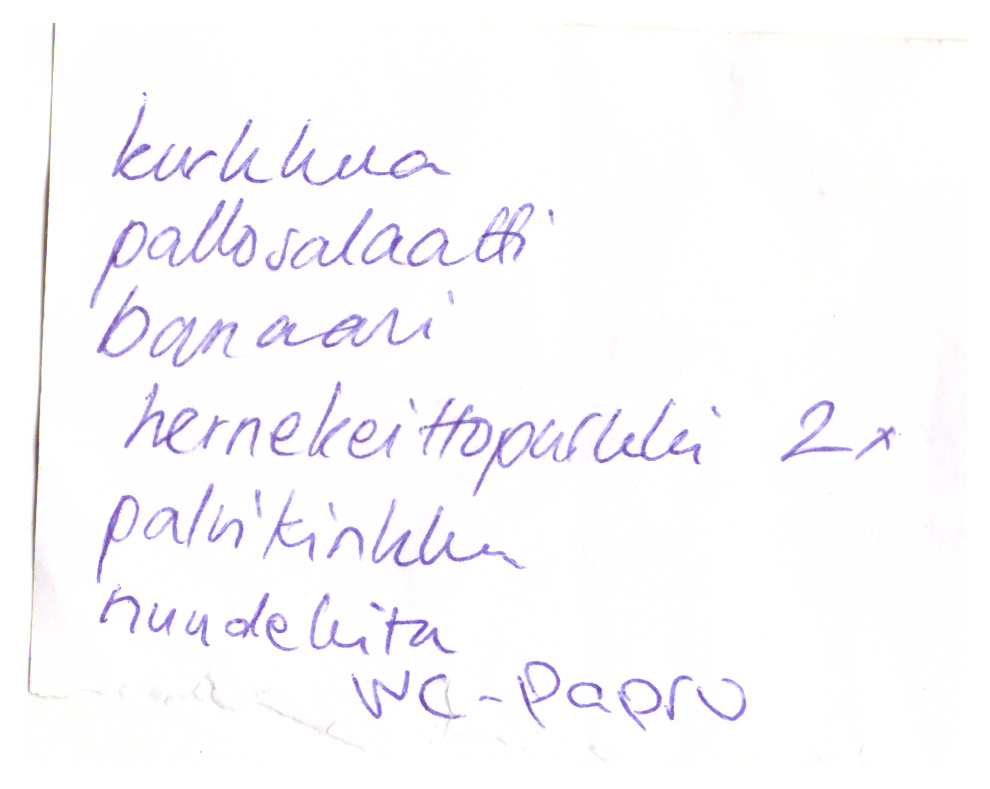 kurkkua
pallosalaatti
banaani
hernekeittopurkki 2x
palvikinkku
nuudeleita
WC-Paperu